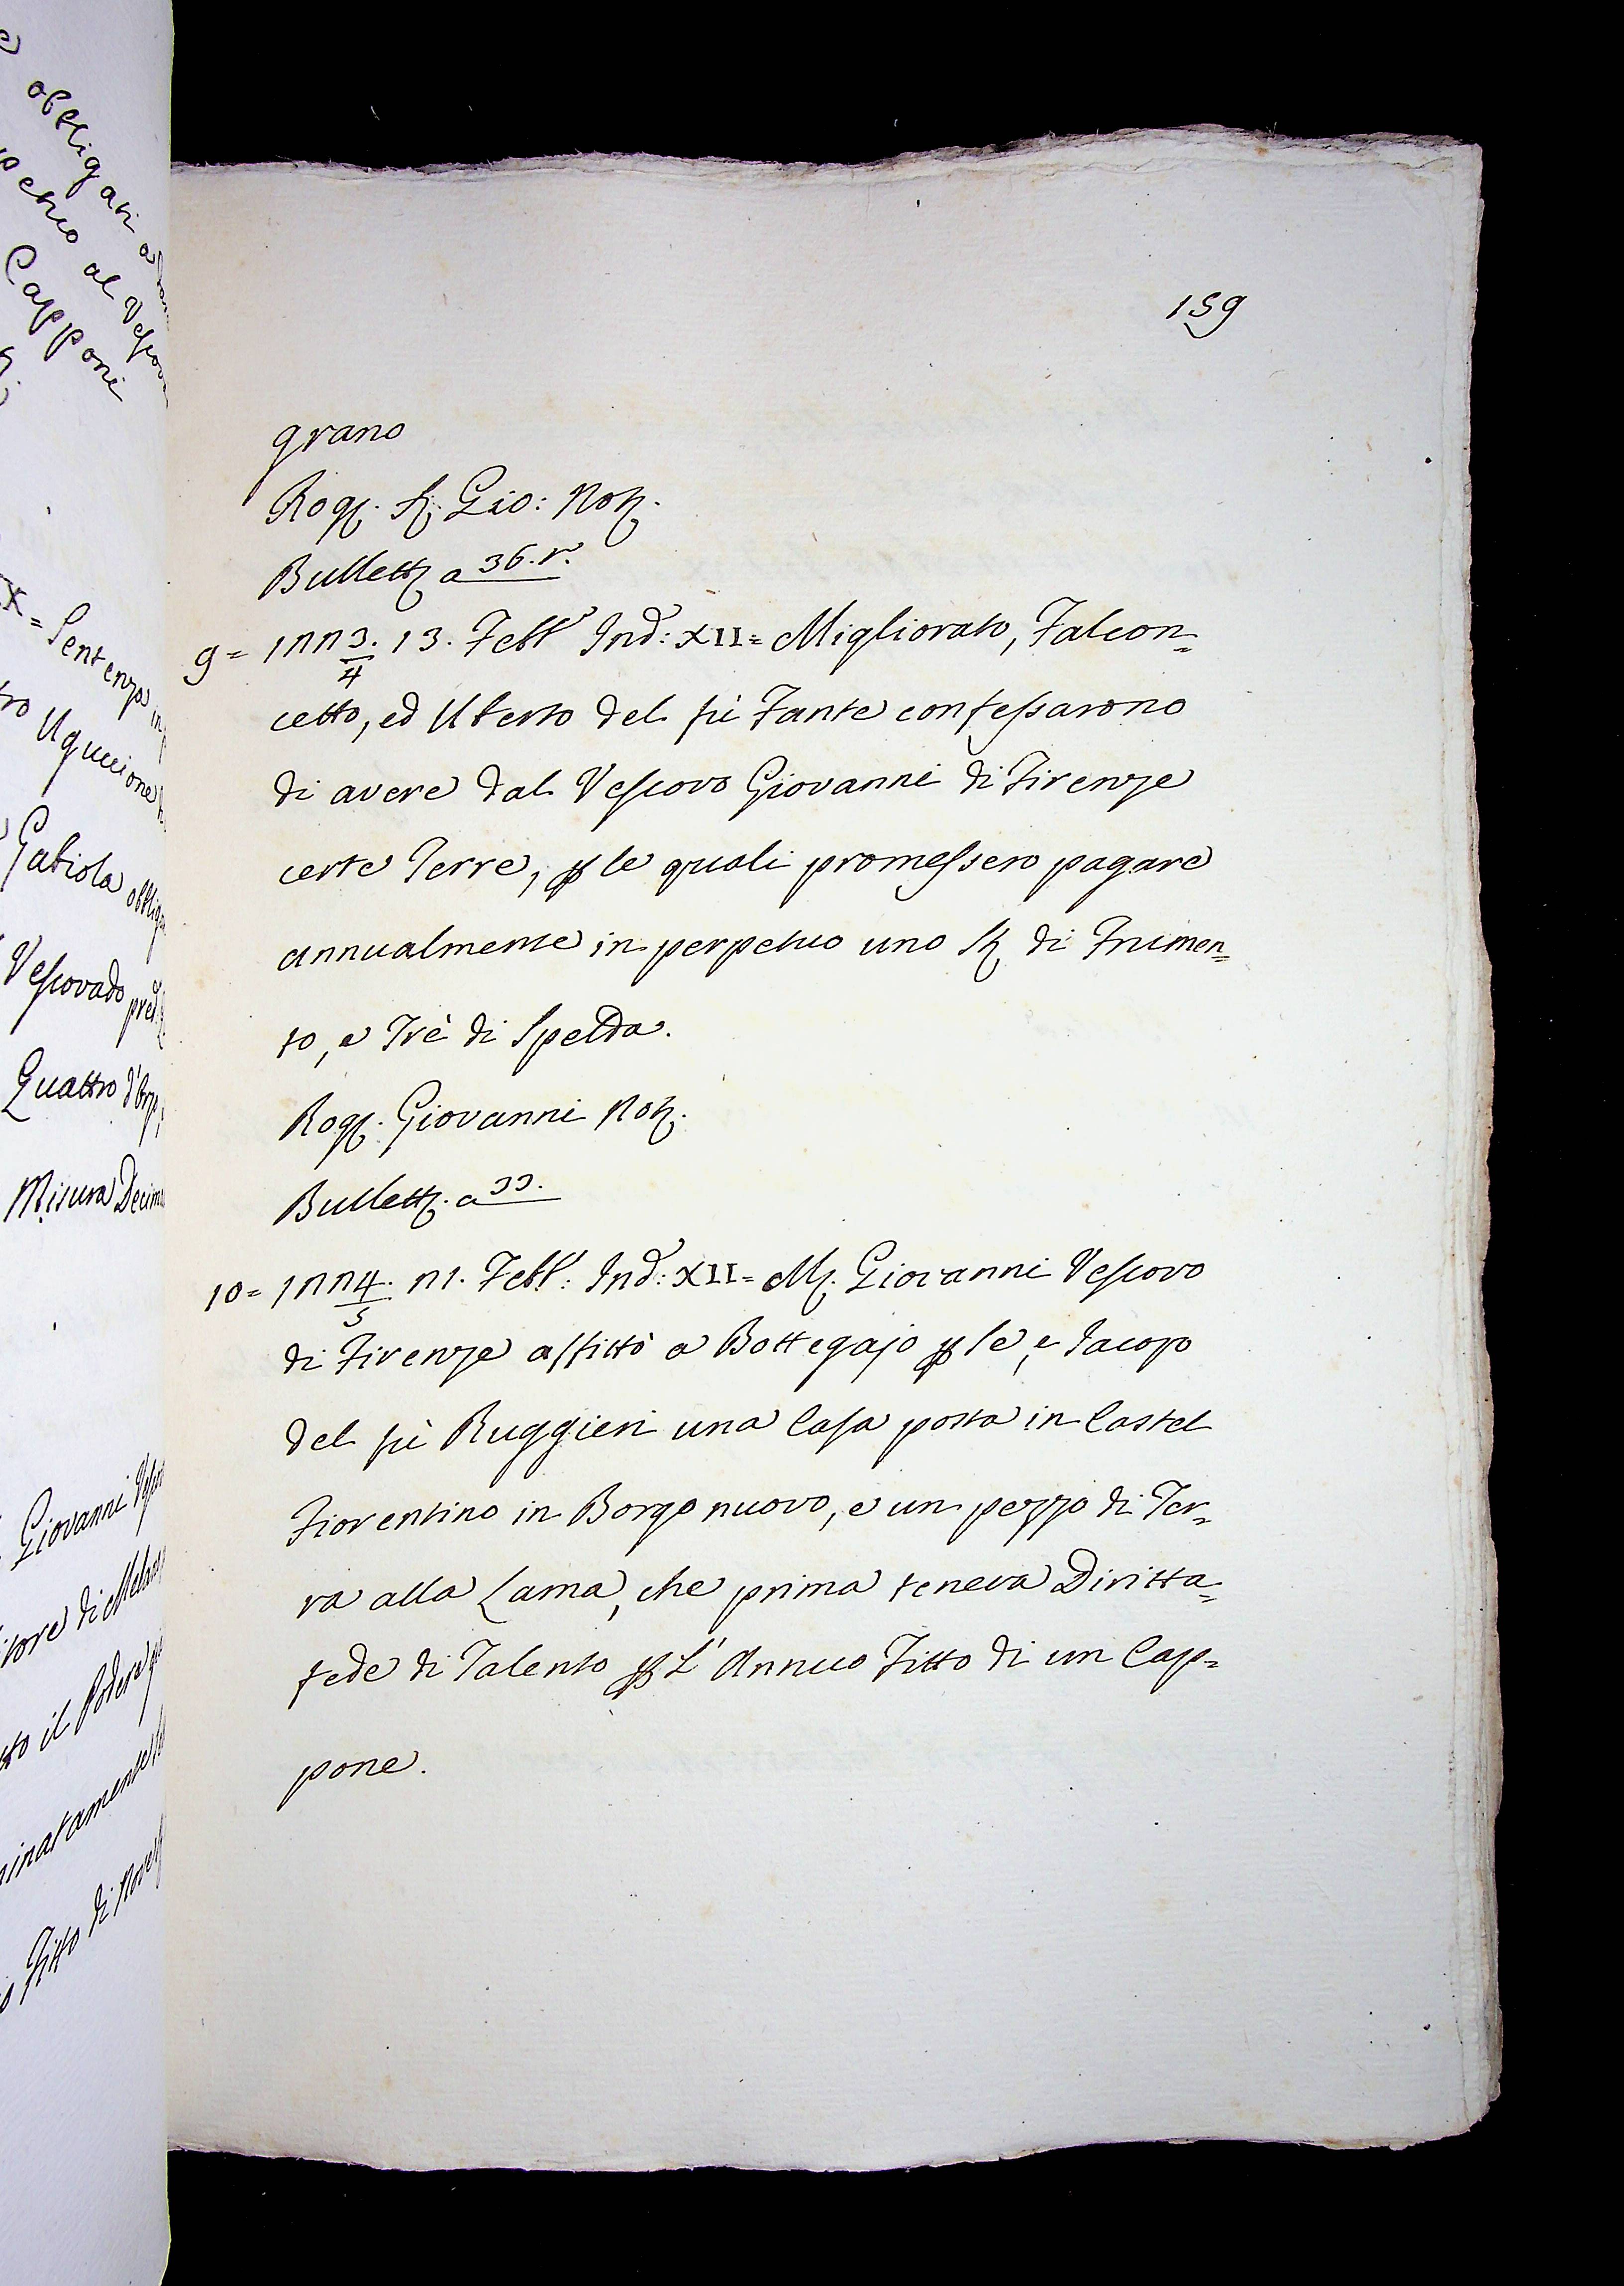 obbligati a
petuo al Vescov
Capponi
X= Sentenza in
Uguccione
Gabiola obblig
Vescovado pred
Quattro d'Orzo,
Misura Decim
Giovanni Vesco
tore di
tto il Podere
minatamente
Fitto di Nove
159
grano
Rog. S. Gio: Not.
Bullett. a 36. r.
9= 1223/4. 13. Febb.º Ind: XII= Migliorato, Falcon=
cetto, ed Uberto del fù Fante confessarono
di avere dal Vescovo Giovanni di Firenze
certe Terre, p le quali promessero pagare
annualmente in perpetuo uno St. di Frumen=
to, e Trè di Spelda.
Rog. Giovanni Not.
Bullett. a 33.
10= 1224/5. 21. Febb.º: Ind: XII= M. Giovanni Vescovo
di Firenze affittò a Bottegajo p se, e Jacopo
del fù Ruggieri una Casa posta in Castel
Fiorentino in Borgo nuovo, e un pezzo di Ter=
ra alla Lama, che prima teneva Diritta=
fede di Talento p L'Annuo Fitto di un Cap=
pone.